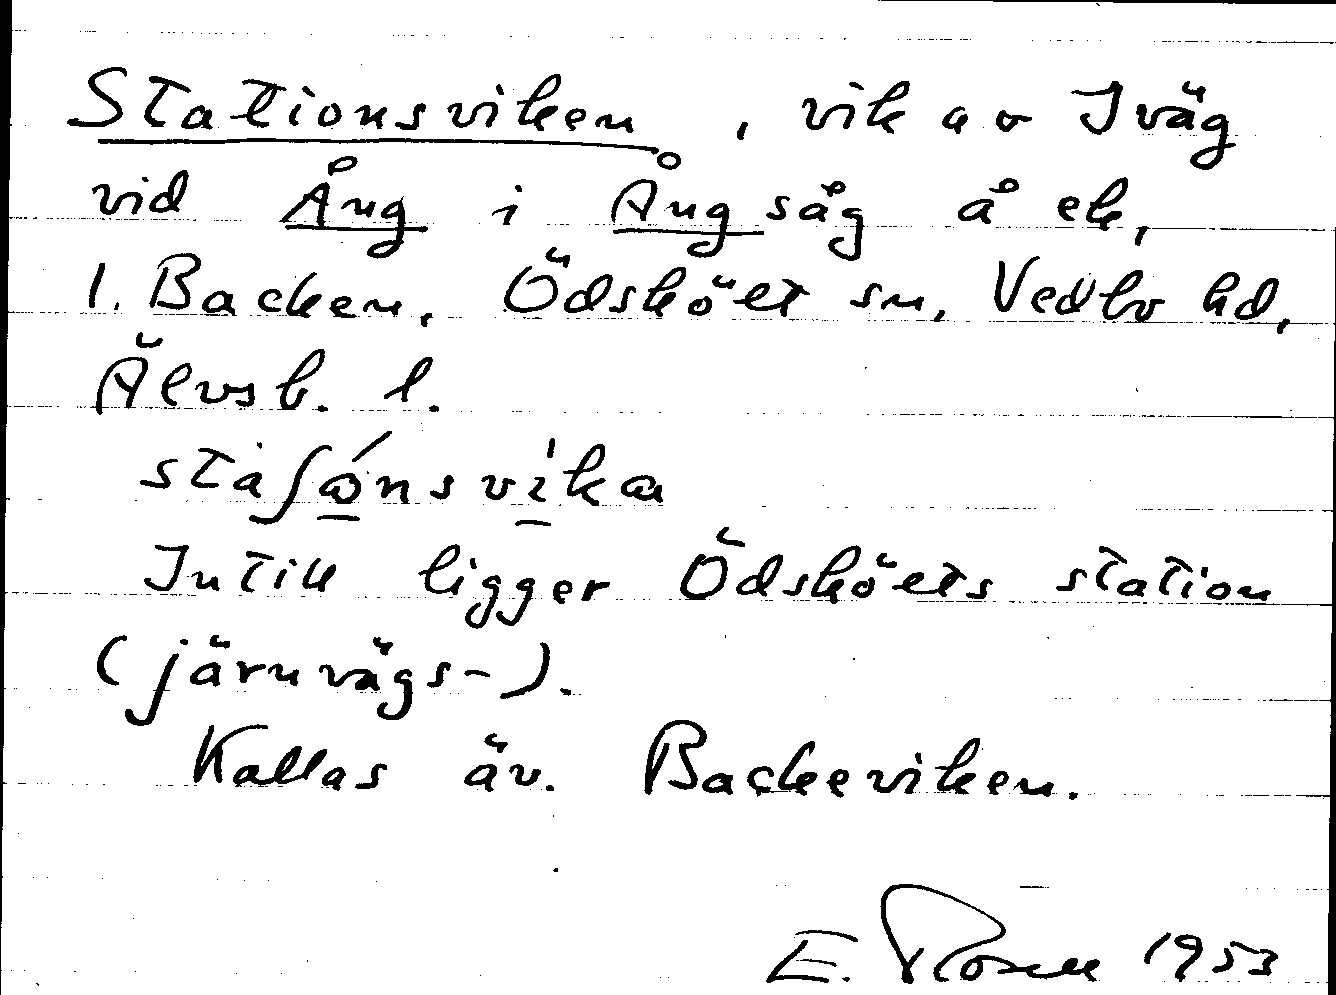 Stationsviken, vik av Iväg
vid Ång i Ångsåg å ek,
l. Backen, Ödskölt sn, Vedbo hd,
Älvsb. l.
Intill ligger Ödskölts station
(järnvägs-).
Kallas äv. Backeviken.
E. Rosell 1953